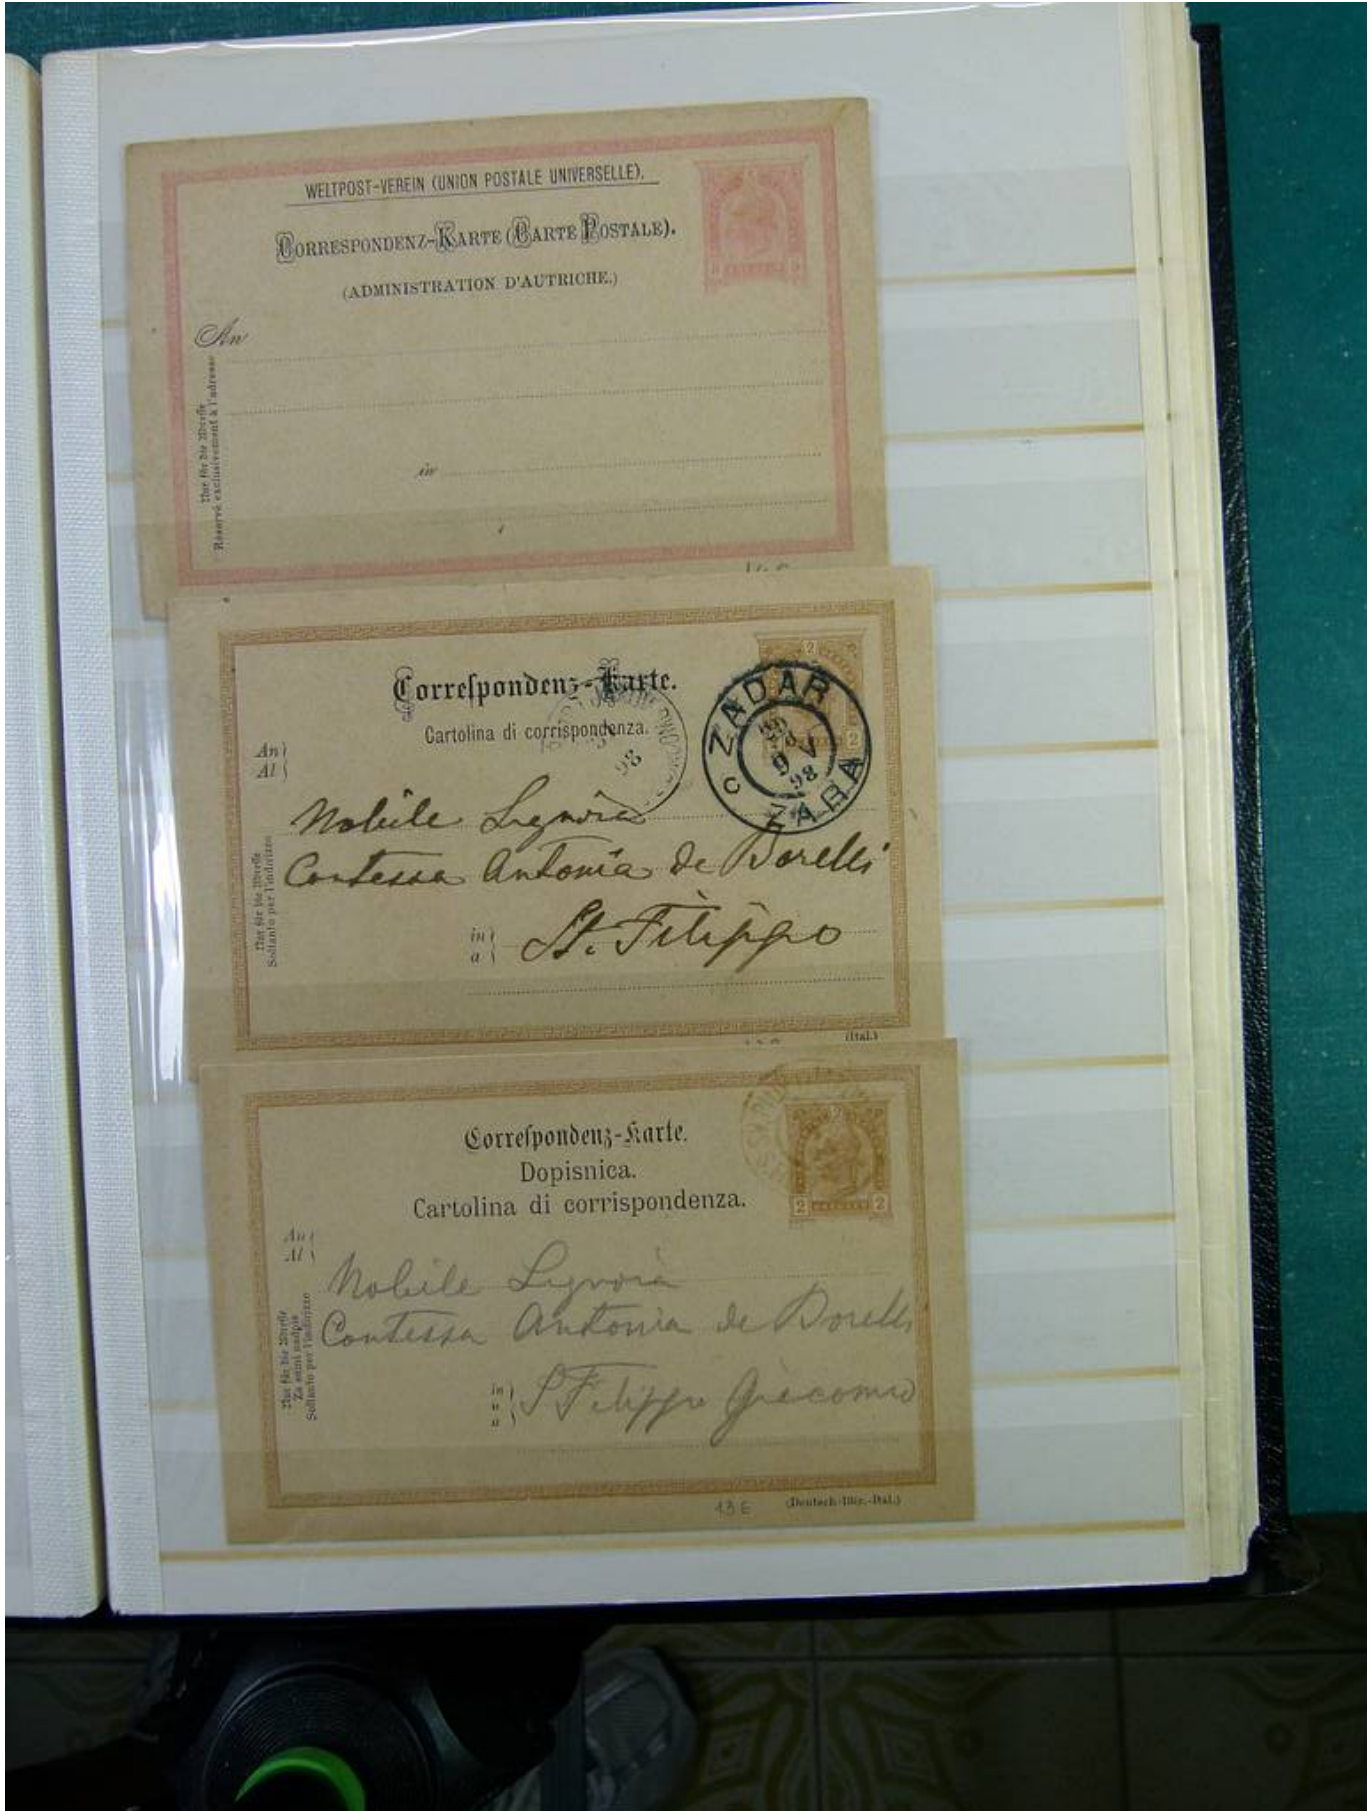 WELTPOST-VEREIN (UNION POSTALE UNIVERSELLE).
CORRESPONDENZ-KARTE (CARTE POSTALE).
(ADMINISTRATION D'AUTRICHE.)
5 5
An
in
Nur für die Adresse
Réservé exclusivement à l'adresse
Correſpondenz-Karte.
Cartolina di corrispondenza.
2
2
ZADAR
9 V
98
C ZARA
98
An
Al
Nobile Signora
Contessa Antonia de Borelli
in
a
St. Filippo
Nur für die Adresse
Soltanto per l'indirizzo
(Ital.)
Correſpondenz-Karte.
Dopisnica.
Cartolina di corrispondenza.
2
2 2
An
Al
Nobile Signora
Contessa Antonia de Borelli
in
u
a
S Filippo Giacomo
Nur für die Adresse
Za sami nadpis
Soltanto per l'indirizzo
13 E
(Deutsch-Illir.-Ital.)